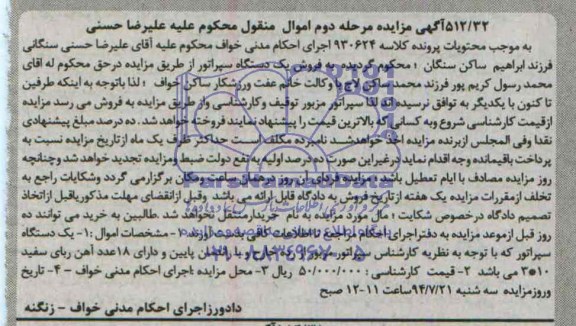 ۵۱۲/۳۲آگهی مزایده مرحله دوم اموال منقول محکوم علیه علیرضا حسنی
به موجب محتویات پرونده کلاسه ۹۳۰۶۲۴ اجرای احکام مدنی خواف محکوم علیه آقای علیرضا حسنی سنگانی
فرزند ابراهیم ساکن سنگان ؛ محکوم گردیده به فروش یک دستگاه سپراتور از طریق مزایده درحق محکوم له اقای
محمد رسول کریم پور فرزند محمد ساکن با وکالت خانم عفت ورزشکار ساکن خواف ؛ لذا باتوجه به اینکه طرفین
تا کنون با یکدیگر به توافق نرسیده اند لذا سپراتور مزبور توقیف وکارشناسی واز طریق مزایده به فروش می رسد مزایده
ازقیمت کارشناسی شروع وبه کسانی که بالاترین قیمت را پیشنهاد نمایند فروخته خواهد شد . ده درصد مبلغ پیشنهادی
نقدا وفی المجلس ازبرنده مزایده اخذ خواهد شد نامبرده مکلف است حداکثر ظرف یک ماه از تاریخ مزایده نسبت به
پرداخت باقیمانده وجه اقدام نماید درغیراین صورت ده درصد اولیه به نفع دولت ضبط ومزایده تجدید خواهد شد وچنانچه
روز مزایده مصادف با ایام تعطیل باشد ؛ مزایده فردای آن روز درهمان ساعت ومکان برگزار می گردد وشکایات راجع به
تخلف ازمقررات مزایده یک هفته ازتاریخ فروش به دادگاه قابل ارائه می باشد . وقبل ازانقضای مهلت مذکوریاقبل ازاتخاذ
تصمیم دادگاه درخصوص شکایت ؛ مال مورد مزایده به نام خریدار منتقل نخواهد شد .طالبین به خرید می توانند ده
روز قبل ازموعد مزایده به دفتراجرای احکام مراجع تا اطلاعات کافی به دست آورند. ۱- مشخصات اموال :۱- یک دستگاه
سپراتور که با توجه به نظریه کارشناس سپراتور مزبور با راندمان پایین و دارای ۱۸عدد آهن ربای سفید
۱۰*۳ می باشد ۲- قیمت کارشناسی : ۵۰/۰۰۰/۰۰۰ ریال ۳- محل مزایده :اجرای احکام مدنی خواف - ۴- تاریخ
وروزمزایده سه شنبه ۹۴/۷/۲۱ساعت ۱۱-۱۲ صبح
دادورزاجرای احکام مدنی خواف - زنگنه
ParsNamadData
۰۲۱-۸۸۳۴۹۶۷۰-۵